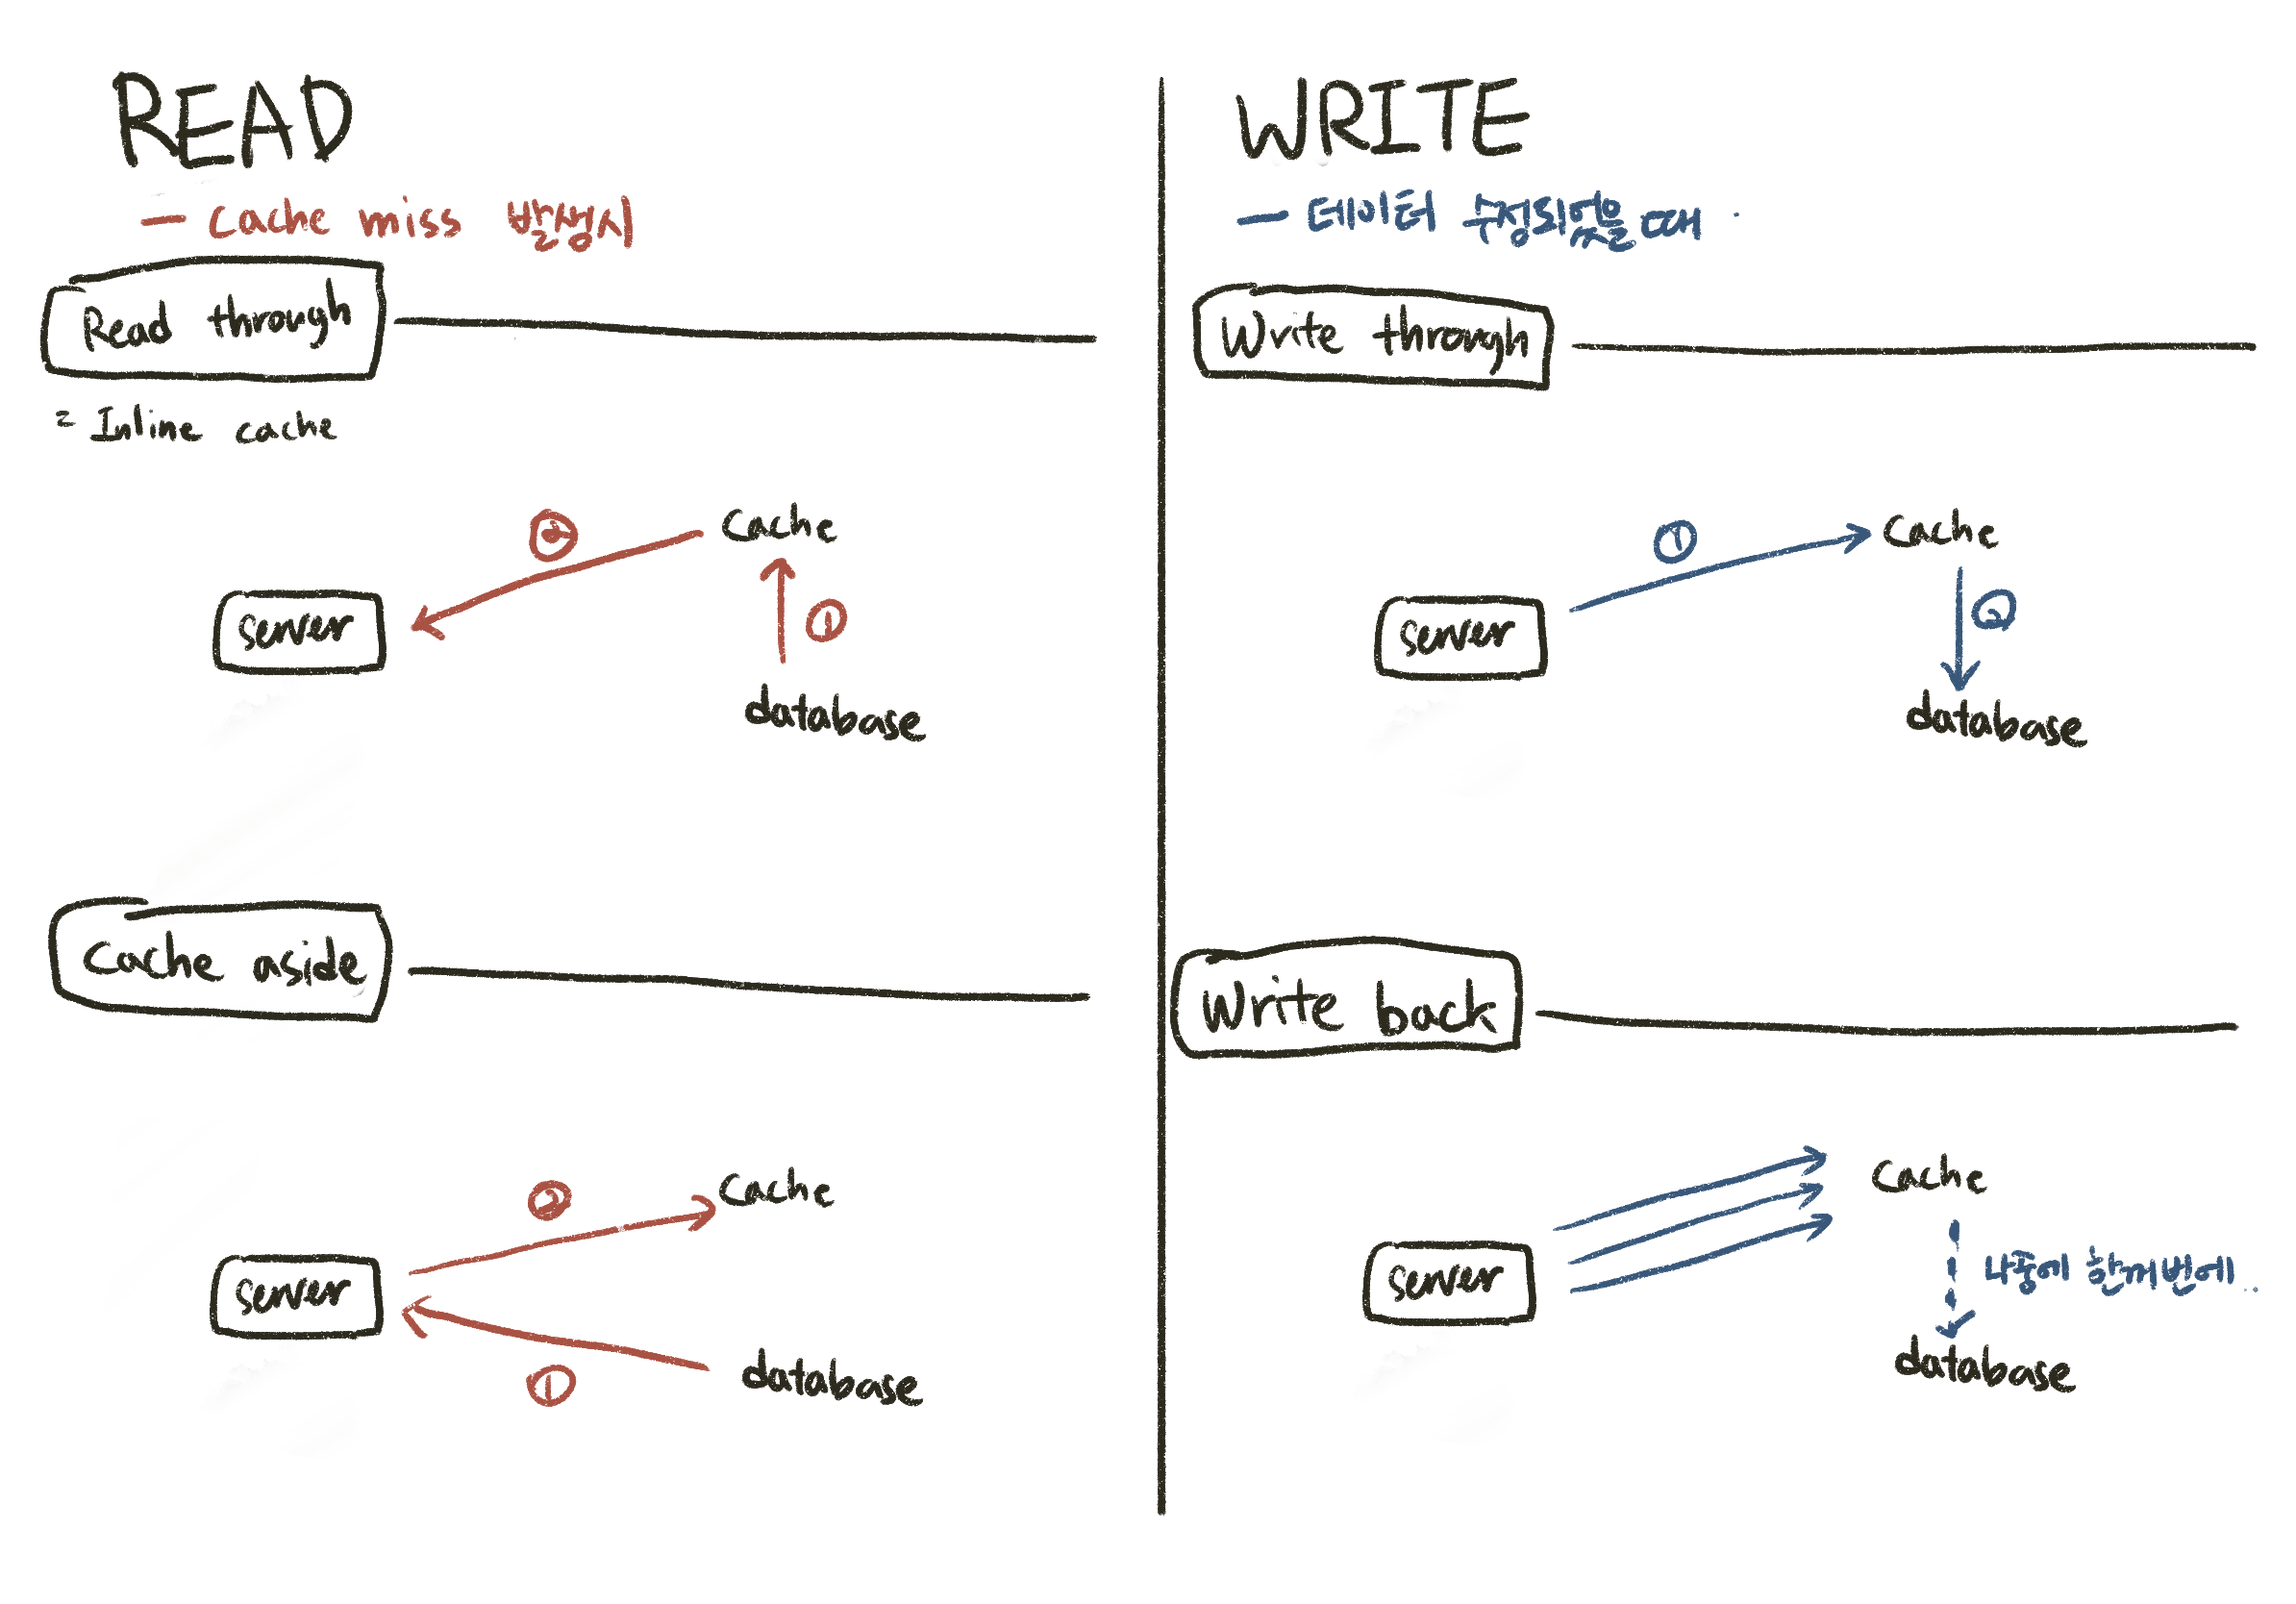 READ
- Cache miss 발생시
Read through
= Inline cache
②
Cache
server
①
database
Cache aside
②
Cache
server
①
database
WRITE
- 데이터 수정되었을 때
Write through
①
Cache
server
②
database
Write back
Cache
server
나중에 한꺼번에..
database